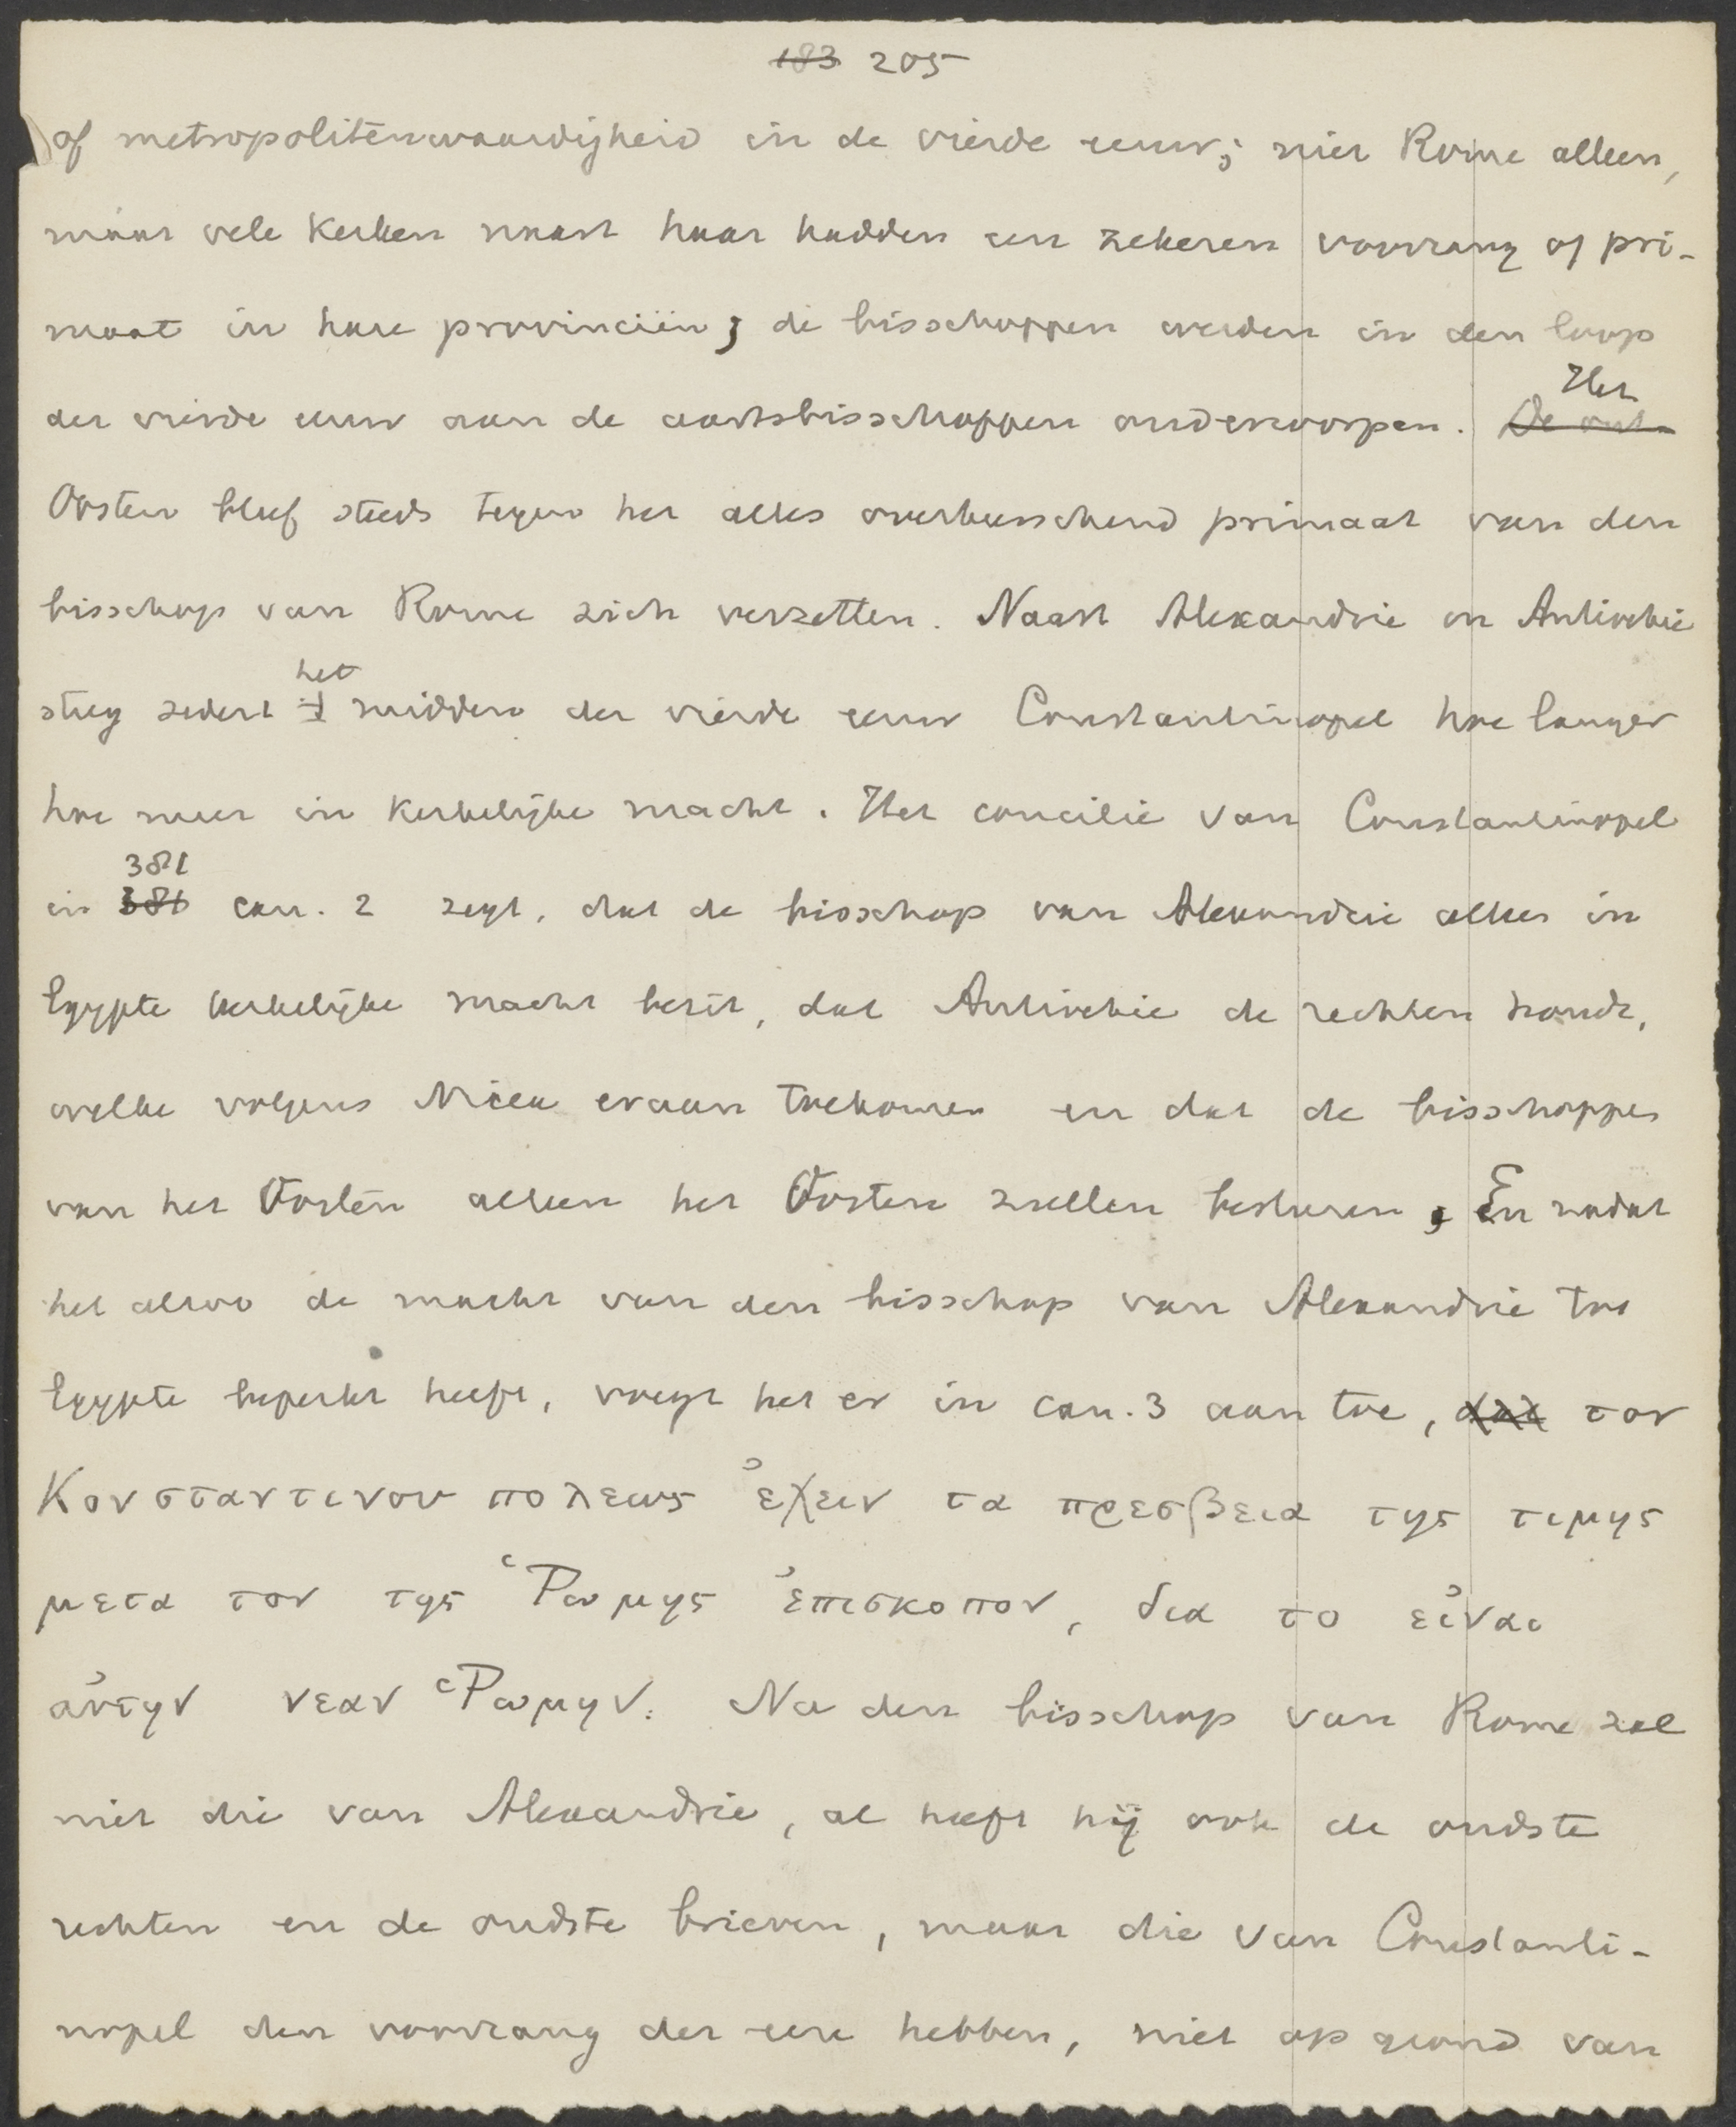 183 205
of metropolitenwaardigheid in de vierde eeuw; niet Rome alleen,
maar vele kerken naast haar hadden een zekeren voorrang of pri-
maat in hare provinciën; de bisschoppen werden in den loop
der vierde eeuw aan de aartsbisschoppen onderworpen. De ont- Het
Oosten bleef steeds tegen het alles overheerschend primaat van den
bisschop van Rome zich verzetten. Naast Alexandrie en Antiochie
steeg sedert het midden der vierde eeuw Constantinopel hoe langer
hoe meer in kerkelijke macht. Het concilie van Constantinopel
in 381 can. 2 zegt, dat de bisschop van Alexandrie alleen in
Egypte kerkelijke macht bezit, dat Antiochie de rechten houdt,
welke volgens Nicea eraan toekomen en dat de bisschoppen
van het Oosten alleen het Oosten zullen besturen; En nadat
het alzoo de macht van den bisschop van Alexandrie tot
Egypte beperkt heeft, voegt het er in can. 3 aan toe, dat τον
Κονσταντινου πολεως ἐχειν τα πρεσβεια της τιμης
μετα τον της Ῥωμης ἐπισκοπον, δια το εἰναι
αὐτην νεαν Ῥωμην. Na den bisschop van Rome zal
niet die van Alexandrie, al heeft hij ook de oudste
rechten en de oudste brieven, maar die van Constanti-
nopel den voorrang der eere hebben, niet op grond van